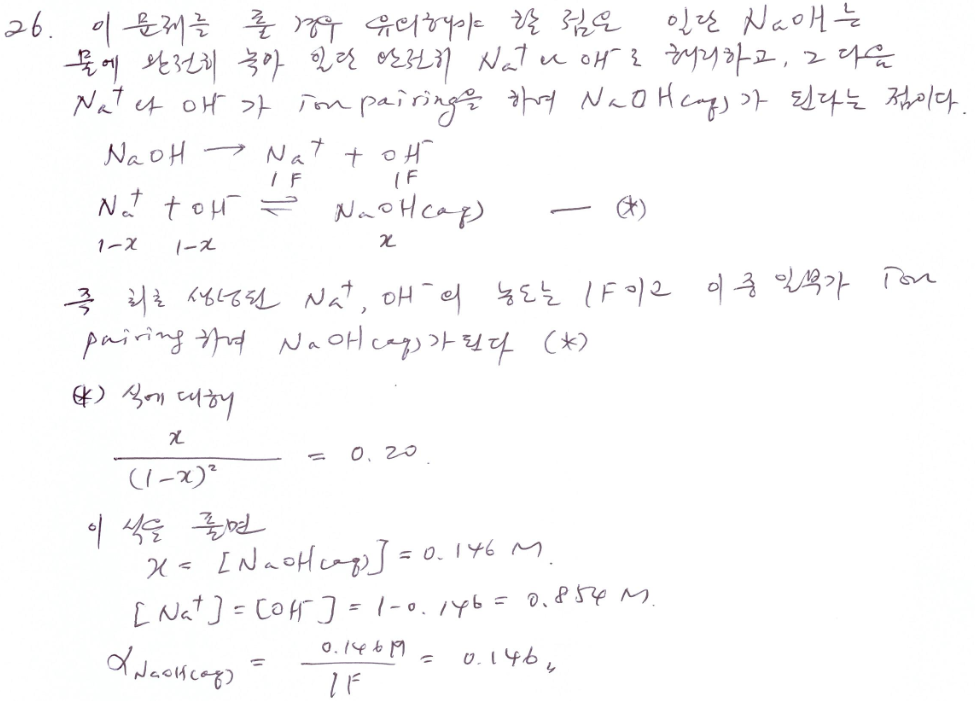 26. 이 문제를 풀 경우 유의해야 할 점은 일단 NaOH는
물에 완전히 녹아 일단 완전히 Na⁺와 OH⁻로 해리하고, 그 다음
Na⁺와 OH⁻가 ion pairing을 하여 NaOH(aq)가 된다는 점이다.
NaOH → Na⁺ + OH⁻
1F 1F
Na⁺ + OH⁻ ⇌ NaOH(aq) — (*)
1-x 1-x x
즉 최초 생성된 Na⁺, OH⁻의 농도는 1F이고 이 중 일부가 ion
pairing 하여 NaOH(aq)가 된다 (*)
(*) 식에 대해
x
/ (1-x)² = 0.20.
이 식을 풀면
x = [NaOH(aq)] = 0.146 M.
[Na⁺] = [OH⁻] = 1-0.146 = 0.854 M.
α NaOH(aq) = 0.146M / 1F = 0.146,,